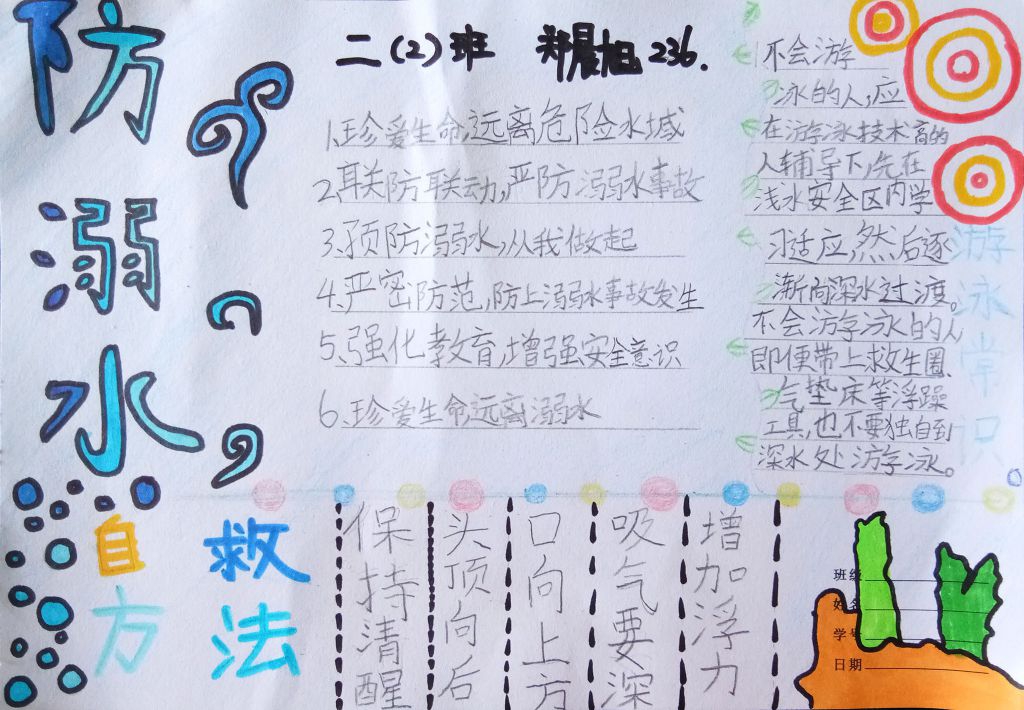 防溺水
二(2)班 郑晨旭 236.
1、珍爱生命,远离危险水域
2、联防联动,严防溺水事故
3、预防溺水,从我做起
4、严密防范,防止溺水事故发生
5、强化教育,增强安全意识
6、珍爱生命远离溺水
不会游
泳的人,应
在游泳技术高的
人辅导下,先在
浅水安全区内学
习适应,然后逐
渐向深水过渡。
不会游泳的人,
即便带上救生圈、
气垫床等浮躁
工具,也不要独自到
深水处游泳。
游泳常识
自救
方法
保持清醒
头顶向后
口向上方
吸气要深
增加浮力
班级
姓名
学号
日期